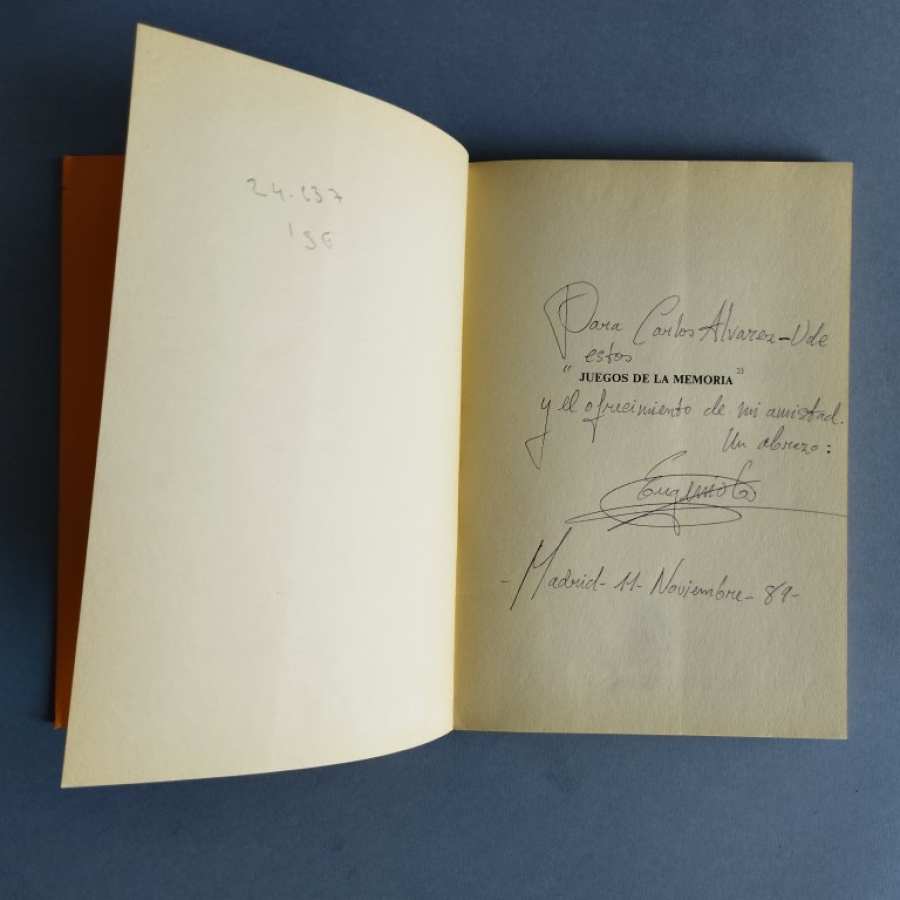 24.637
196
Para Carlos Alvarez-Ude
estos
" JUEGOS DE LA MEMORIA "
y el ofrecimiento de mi amistad.
Un abrazo:
Eugenio
- Madrid - 11 - Noviembre - 89 -